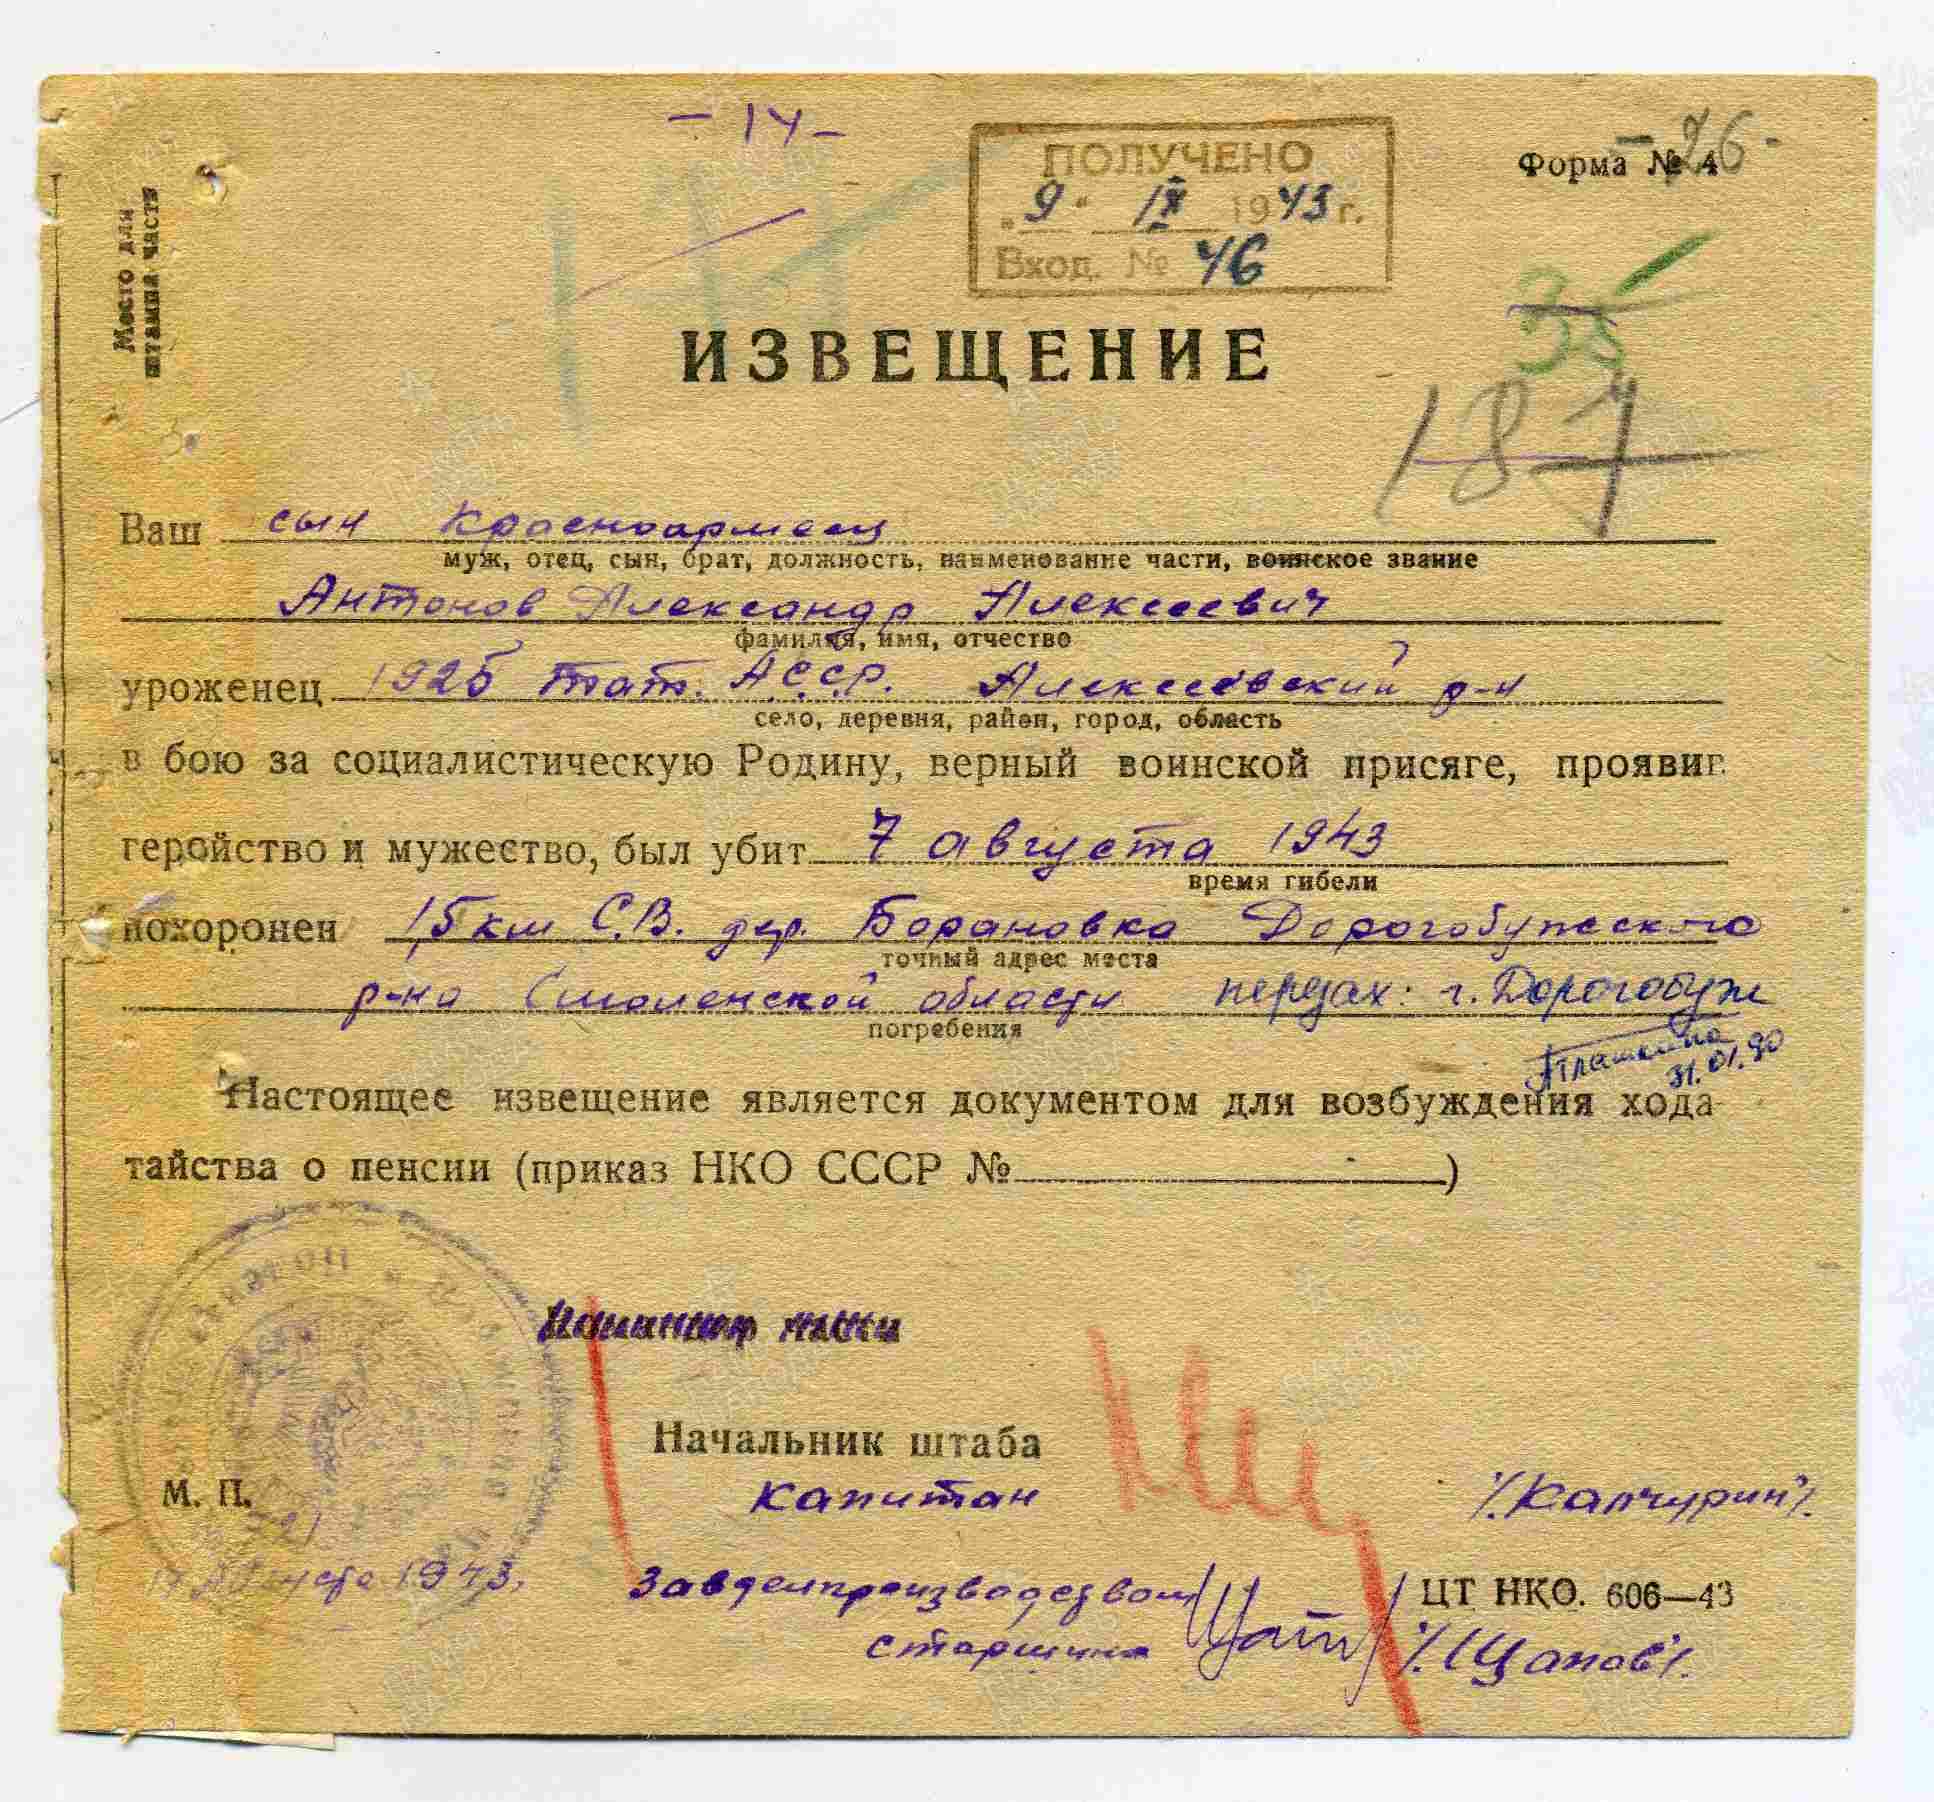 - 14 -
ПОЛУЧЕНО
„9“ IX 1943 г.
Вход. № 46
Форма № 4
- 26 -
Место для
штампа части
35
ИЗВЕЩЕНИЕ
187
Ваш сын красноармеец
муж, отец, сын, брат, должность, наименование части, воинское звание
Антонов Александр Алексеевич
фамилия, имя, отчество
уроженец 1925 Тат. АССР. Алексеевский р-н
село, деревня, район, город, область
в бою за социалистическую Родину, верный воинской присяге, проявив
геройство и мужество, был убит 7 августа 1943
время гибели
похоронен 1,5 км С.В. дер. Барановка Дорогобужского
точный адрес места
р-на Смоленской области перезах: г. Дорогобуж
погребения
31.01.90
Настоящее извещение является документом для возбуждения хода-
тайства о пенсии (приказ НКО СССР № )
Начальник штаба
М. П.
капитан /Капчурин/.
августа 1943.
Завделпроизводством
ЦТ НКО. 606—43
старшина /Цапов/.